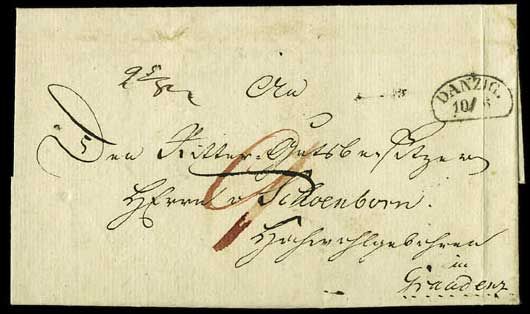 An
DANZIG.
10/
Den Ritter-Gutsbesitzern
Herrn v Schoenborn.
Hochwohlgebohren
in
Graudenz